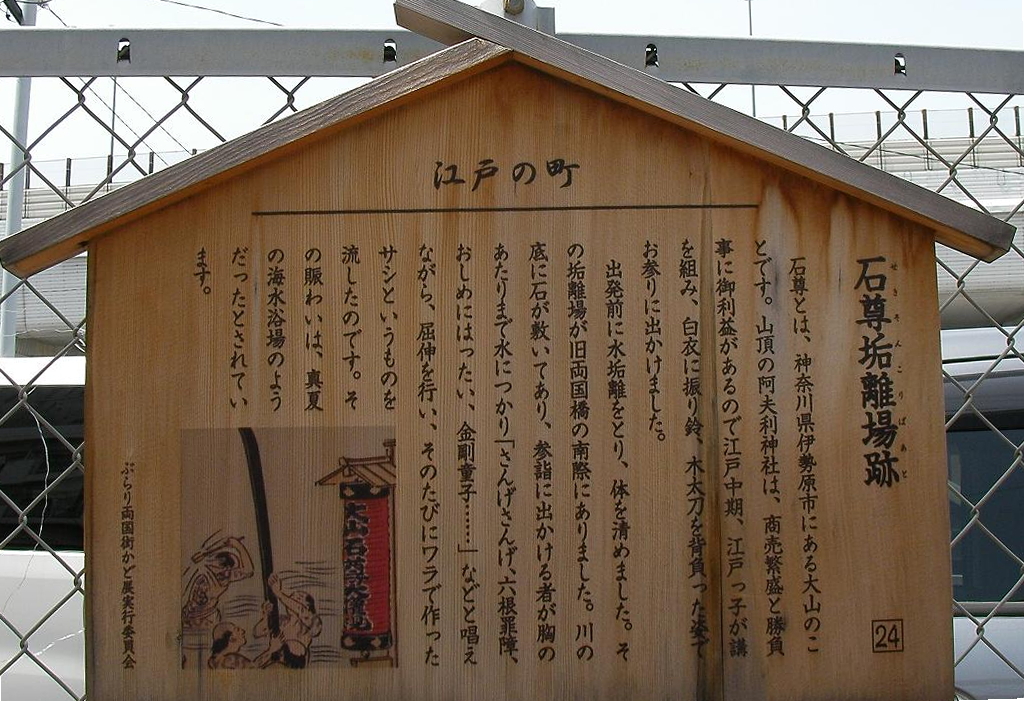 江戸の町
石尊垢離場跡
せきそんこりばあと
24
石尊とは、神奈川県伊勢原市にある大山のこ
とです。山頂の阿夫利神社は、商売繁盛と勝負
事に御利益があるので江戸中期、江戸っ子が講
を組み、白衣に振り鈴、木太刀を背負った姿で
お参りに出かけました。
出発前に水垢離をとり、体を清めました。そ
の垢離場が旧両国橋の南際にありました。川の
底に石が敷いてあり、参詣に出かける者が胸の
あたりまで水につかり「さんげさんげ、六根罪障、
おしめにはったい、金剛童子……」などと唱え
ながら、屈伸を行い、そのたびにワラで作った
サシというものを
流したのです。そ
の賑わいは、真夏
の海水浴場のよう
だったとされてい
ます。
大山石尊大権現
ぶらり両国街かど展実行委員会